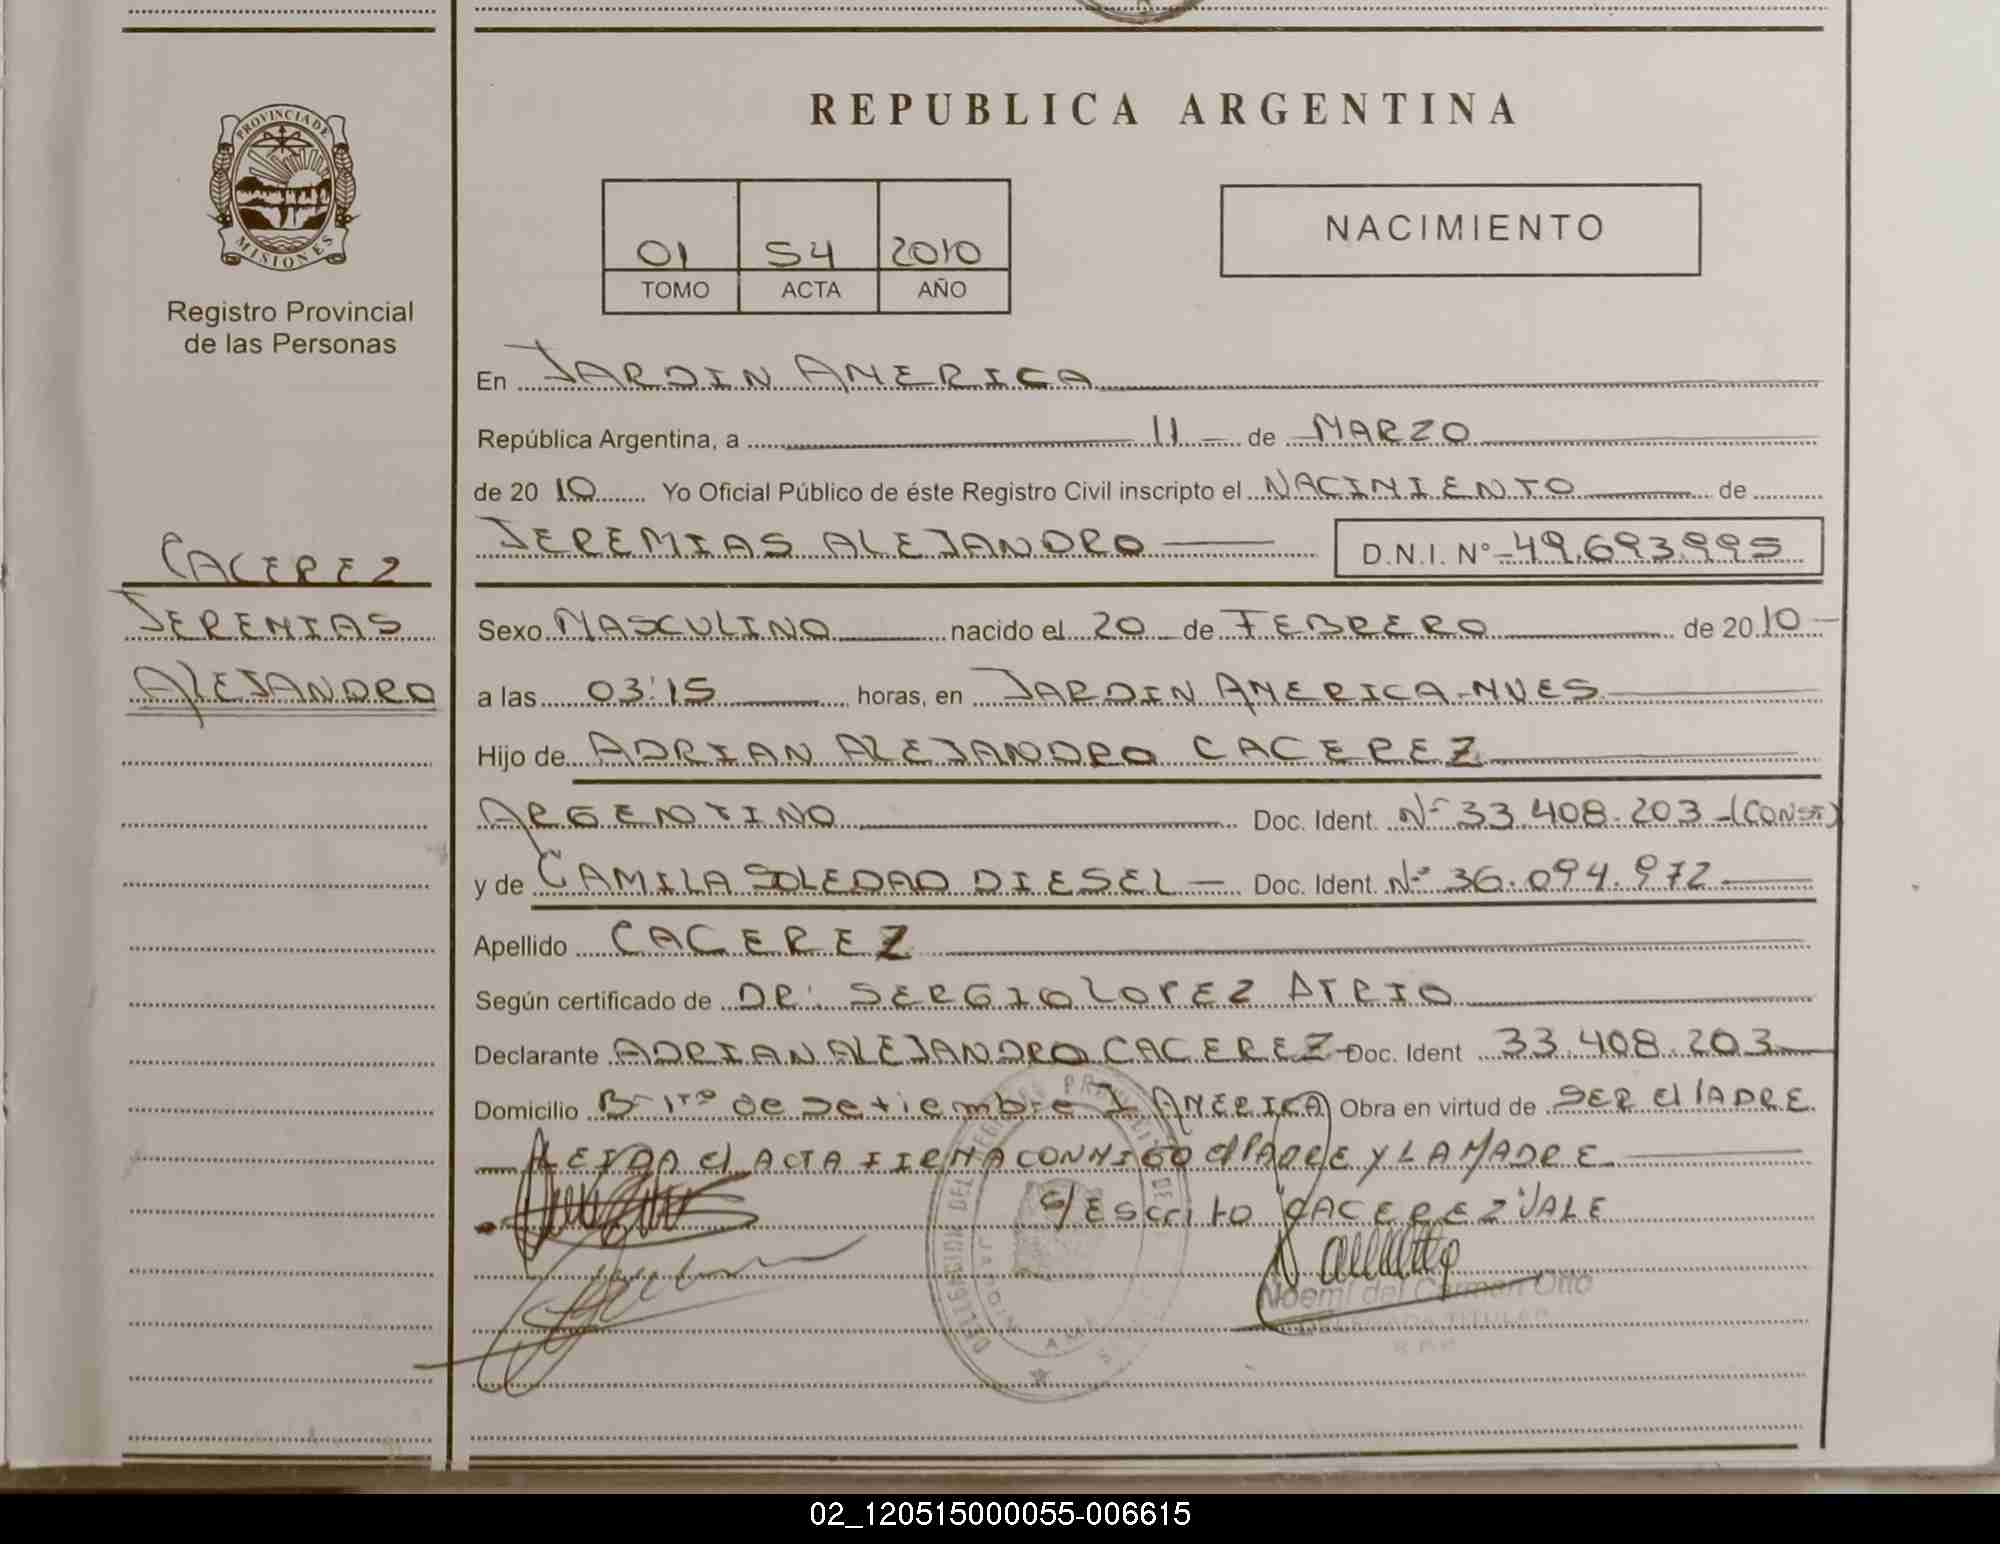 PROVINCIA DE
MISIONES
Registro Provincial
de las Personas
CACEREZ
JEREMIAS
ALEJANDRO
REPUBLICA ARGENTINA
01 54 2010
TOMO ACTA AÑO
NACIMIENTO
En JARDIN AMERICA
República Argentina, a 11 de MARZO
de 20 10 Yo Oficial Público de éste Registro Civil inscripto el NACIMIENTO de
JEREMIAS ALEJANDRO D.N.I. N° 49.693.995
Sexo MASCULINO nacido el 20 de FEBRERO de 20 10
a las 03:15 horas, en JARDIN AMERICA-MNES
Hijo de ADRIAN ALEJANDRO CACEREZ
ARGENTINO Doc. Ident. Nº 33.408.203 (CONST)
y de CAMILA SOLEDAD DIESEL Doc. Ident. Nº 36.094.972
Apellido CACEREZ
Según certificado de DR. SERGIO LOPEZ ATRIO
Declarante ADRIAN ALEJANDRO CACEREZ Doc. Ident 33.408.203
Domicilio Bº 1ro de Setiembre J AMERICA Obra en virtud de SER El PADRE
LEIDA el ACTA FIRMA CONMIGO el PADRE Y LA MADRE
S/Escrito "CACEREZ" VALE
Noemí del Carmen Otto
DELEGADA TITULAR
R.P.P.
02_120515000055-006615